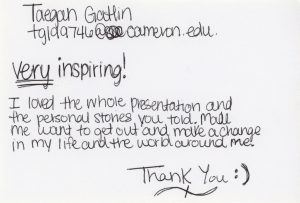 Taegan Gatlin
tg1d9746@cameron.edu.
very inspiring!
I loved the whole presentation and
the personal stories you told. Made
me want to get out and make a change
in my life and the world around me!
Thank You :)